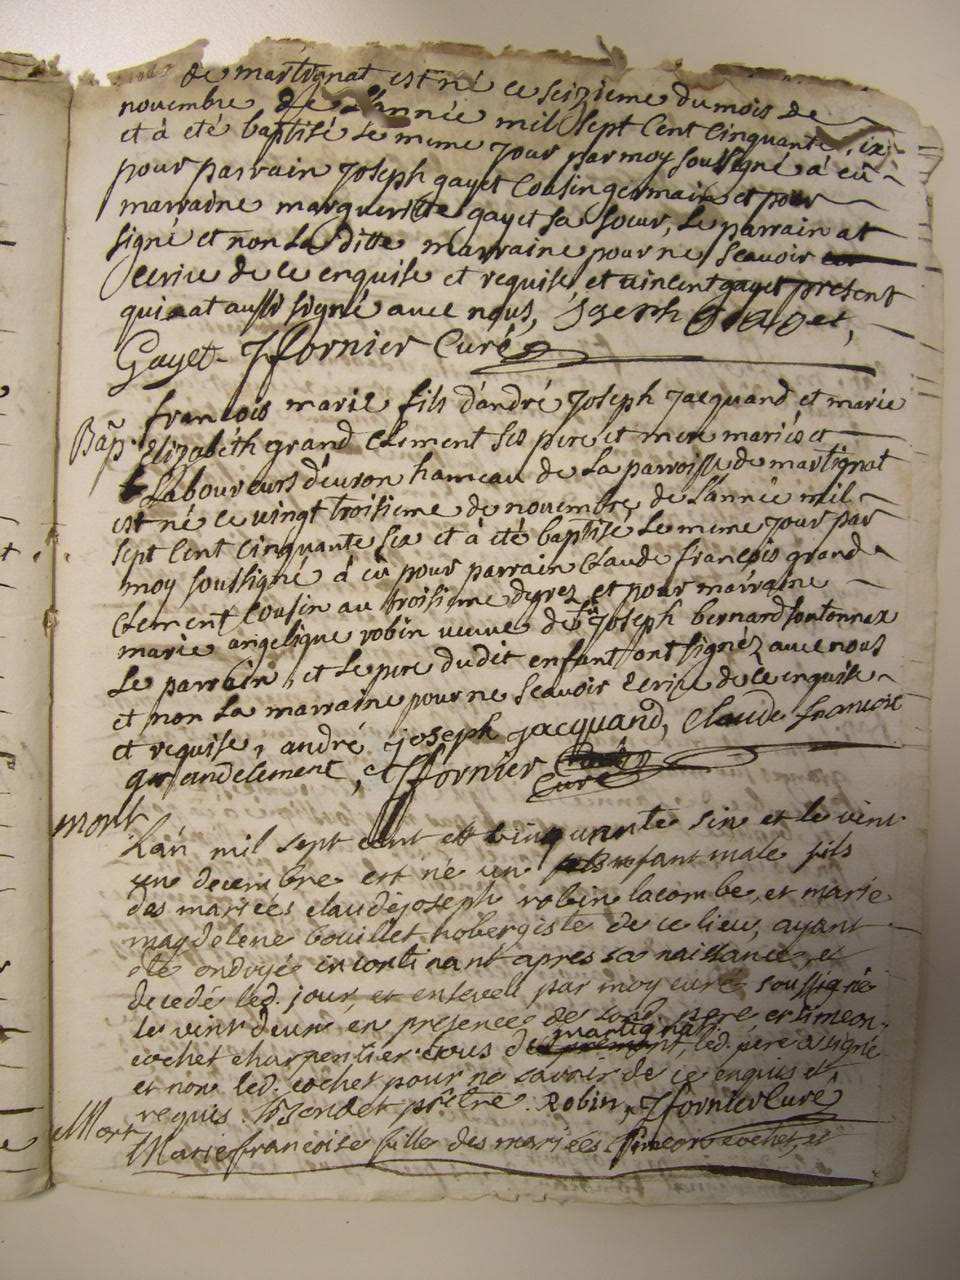 de martignat est né ce seizieme du mois de
novembre de L'année mil sept Cent Cinquante six
et à eté baptisé Le meme jour par moy soussigné à eû
pour parrain Joseph gayet Cousin germain et pour
marraine margueritte gayet sa soeur, Le parrain at
signé et non La ditte marraine pour ne scavoir
ecrire de ce enquise et requise et vincent gayet present
qui at aussi signé avec nous, Joseph Gayet,
Gayet - J fornier Curé
francois marie fils d'andré Joseph Jacquand et marie
Bap. Elizabéth grand Clement ses pere et mere mariés et
Laboureurs d'évron hameau de La parroisse de martignat
est né ce vingt troisieme de novembre de L'année mil
sept Cent Cinquante six et à eté baptisé Le meme jour par
moy soussigné à eû pour parrain Claude françois grand
Clement Cousin au troisieme degrez et pour marraine
marie angelique robin veuve de Joseph bernard fontonnax
Le parrain et Le pere du dit enfant ont signéz avec nous
et non La marraine pour ne scavoir ecrire de ce enquise
et requise, andré joseph jacquand, Claude francoit
grandclement, J fornier
Curé
mort
L'an mil sept cent et cinquante six et le vint
un decembre est né un enfant male fils
des mariees claude joseph robin lacombe, et marie
magdelene bouillet hobergiste de ce lieu, ayant
eté ondoyé incontinant apres sa naissance, et
decedé led. jour, et enseveli par moy curé soussigné
le vint deux en presences de sond. pere et simeon
martignat
cochet charpentier tous de led. pére a signé
et non led. cochet pour ne savoir de ce enquis et
requis. prêtre. Robin, J fornier Curé
Mort
Marie françoise fille des mariées Simeon cochet, et